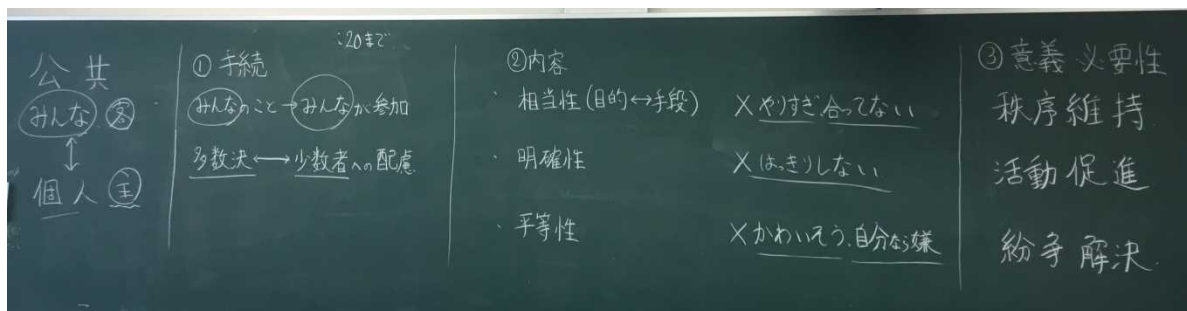 公共
みんな 客
↕
個人 主
:20まで
① 手続
みんなのこと→みんなが参加
多数決⟷少数者への配慮
②内容
・相当性(目的↔手段) ×やりすぎ、合ってない
・明確性 ×はっきりしない
・平等性 ×かわいそう、自分なら嫌
③意義 必要性
秩序維持
活動促進
紛争解決